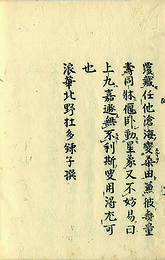 覆載任他滄海變桑田薫彼無量
壽同牀偃卧動星象又不妨易曰
上九嘉遯無不利斯叟用得尤可
也
浪華北野杜多錬子撰